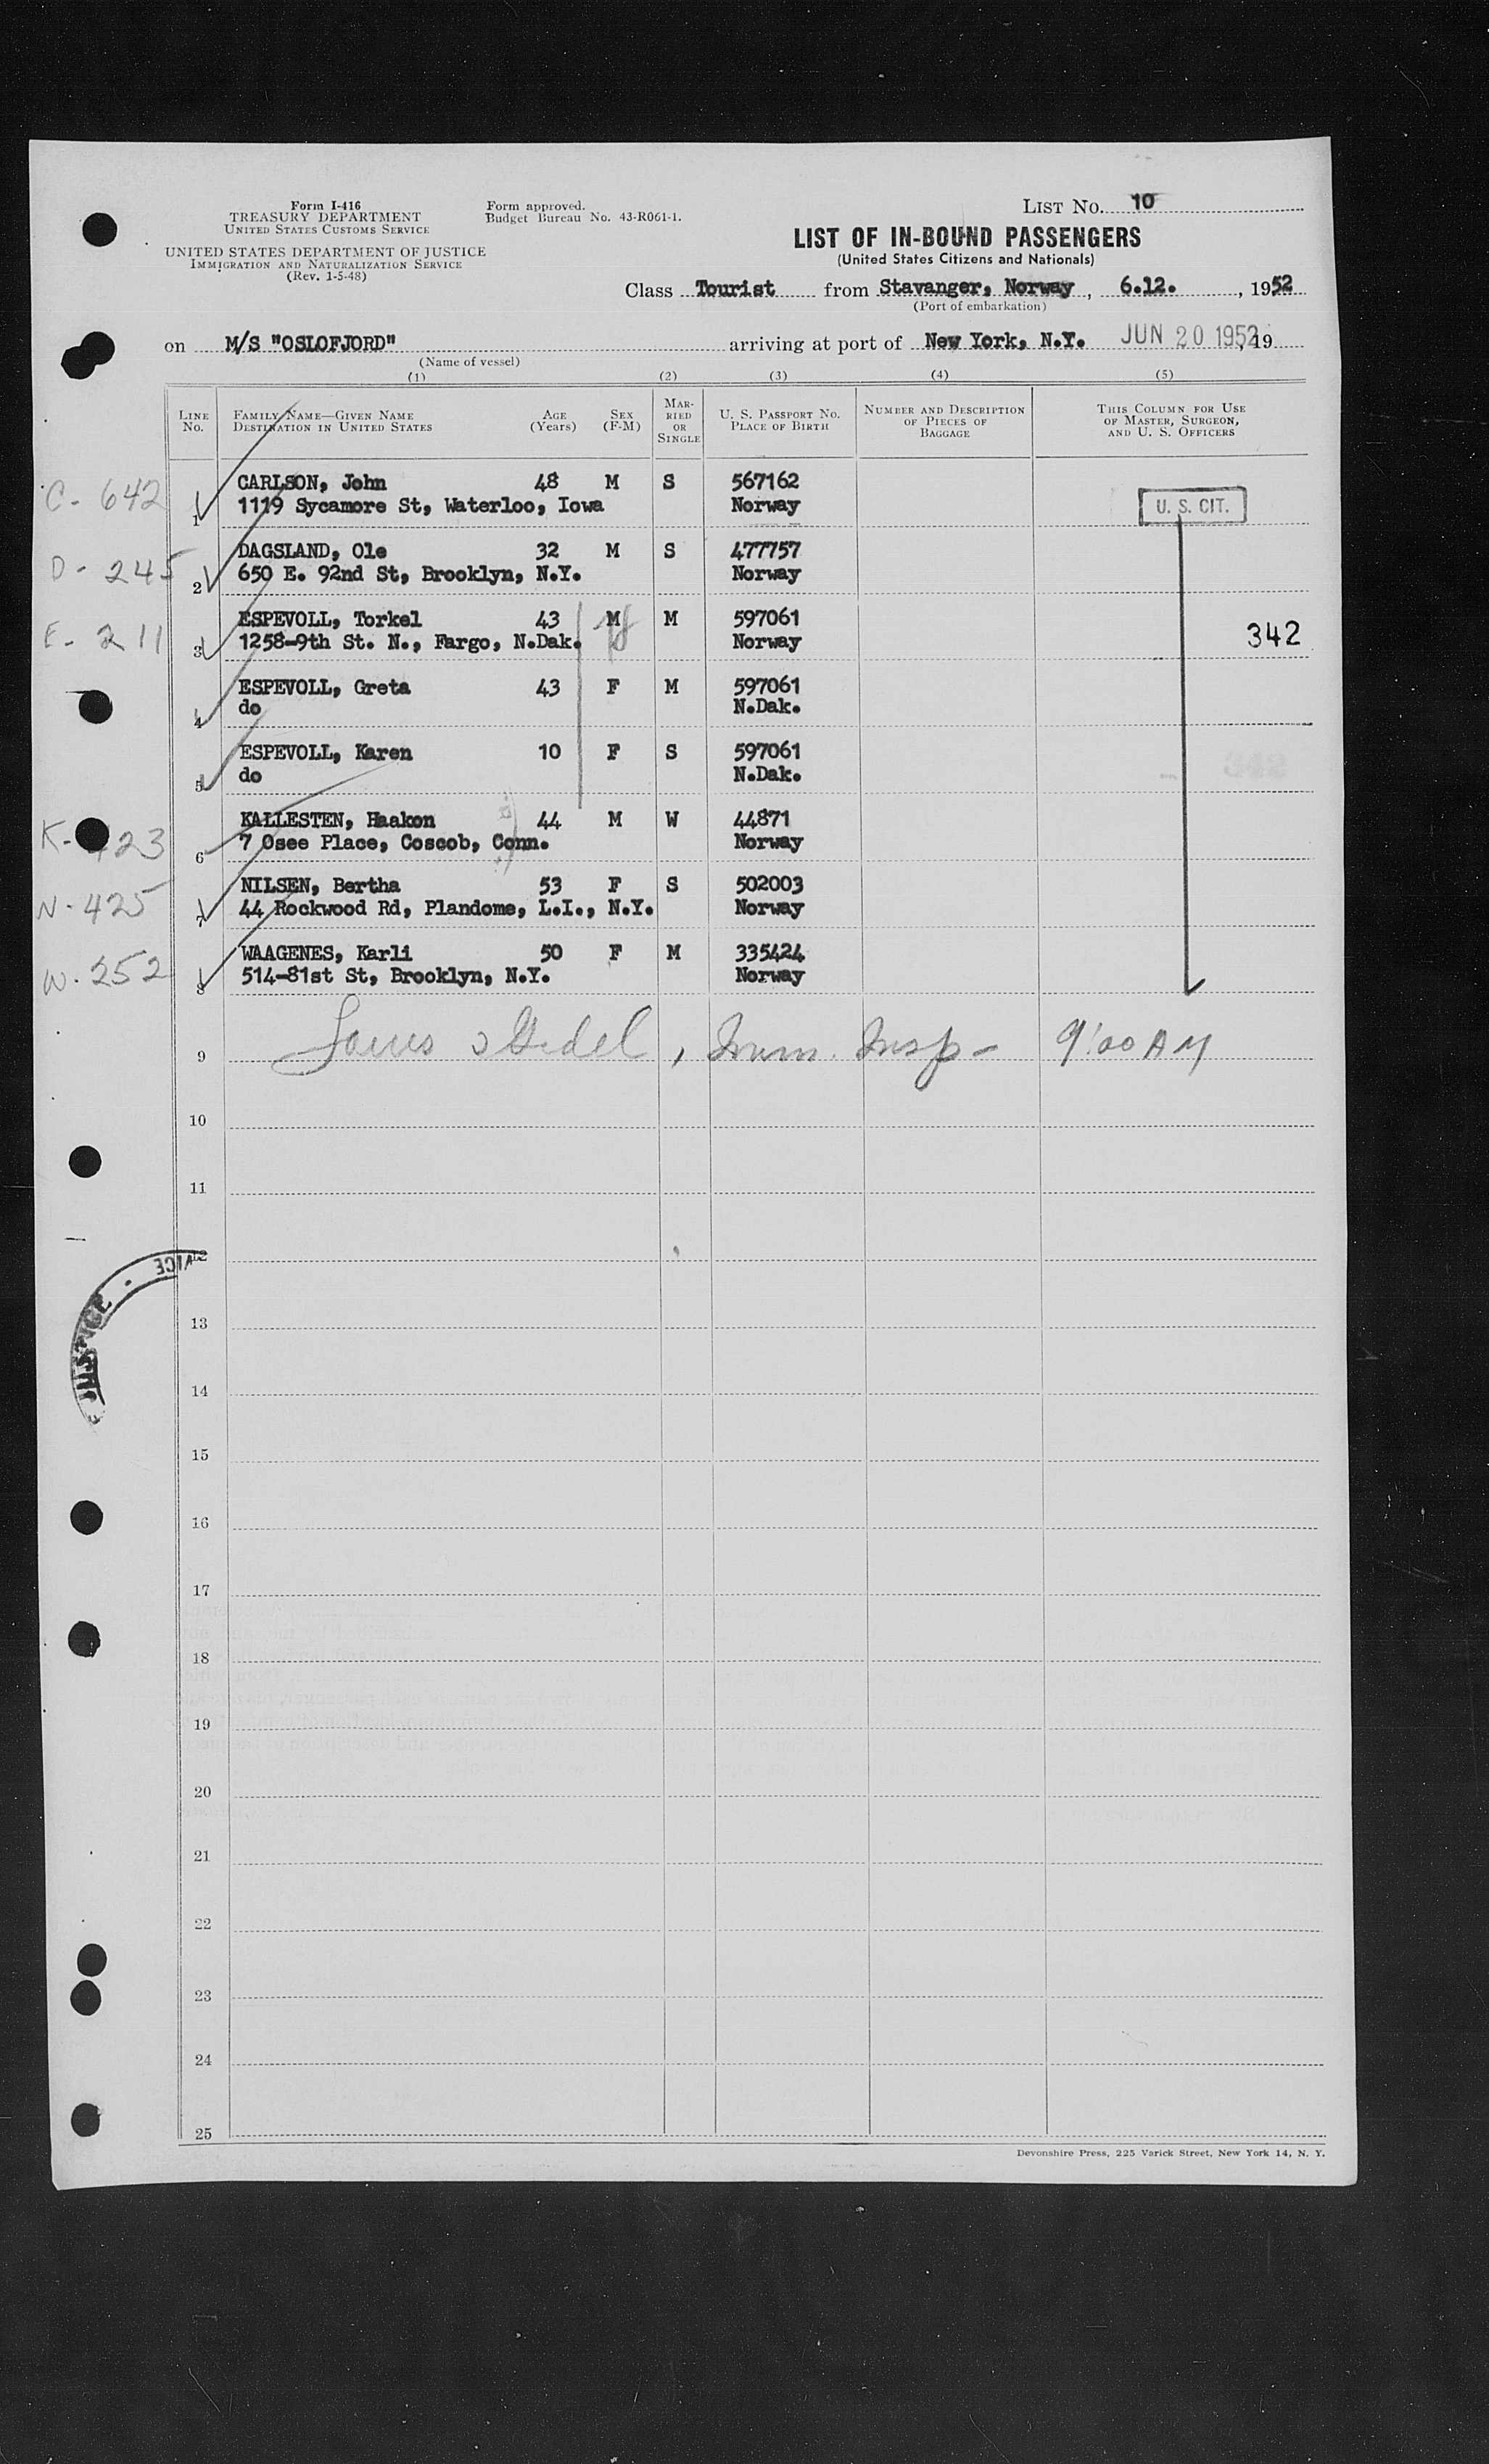 Form I-416
TREASURY DEPARTMENT
UNITED STATES CUSTOMS SERVICE
UNITED STATES DEPARTMENT OF JUSTICE
IMMIGRATION AND NATURALIZATION SERVICE
(Rev. 1-5-48)
Form approved.
Budget Bureau No. 43-R061-1.
LIST No. 10
LIST OF IN-BOUND PASSENGERS
(United States Citizens and Nationals)
Class Tourist from Stavanger, Norway, 6.12., 1952
(Port of embarkation)
on M/S "OSLOFJORD" arriving at port of New York, N.Y. JUN 20 1952, 19
(Name of vessel)
(1) (2) (3) (4) (5)
LINE No. FAMILY NAME—GIVEN NAME DESTINATION IN UNITED STATES AGE (Years) SEX (F-M) MARRIED OR SINGLE U. S. PASSPORT NO. PLACE OF BIRTH NUMBER AND DESCRIPTION OF PIECES OF BAGGAGE THIS COLUMN FOR USE OF MASTER, SURGEON, AND U. S. OFFICERS
C-642 1 CARLSON, John 48 M S 567162
1119 Sycamore St, Waterloo, Iowa Norway U. S. CIT.
D-245 2 DAGSLAND, Ole 32 M S 477757
650 E. 92nd St, Brooklyn, N.Y. Norway
E-211 3 ESPEVOLL, Torkel 43 M M 597061
1258-9th St. N., Fargo, N.Dak. Norway 342
4 ESPEVOLL, Greta 43 F M 597061
do N.Dak.
5 ESPEVOLL, Karen 10 F S 597061
do N.Dak.
K- 423 6 KALLESTEN, Haakon 44 M W 44871
7 Osee Place, Coscob, Conn. Norway
N-425 7 NILSEN, Bertha 53 F S 502003
44 Rockwood Rd, Plandome, L.I., N.Y. Norway
W-252 8 WAAGENES, Karli 50 F M 335424
514-81st St, Brooklyn, N.Y. Norway
9 , Imm. Insp- 9:00 AM
10
11
12
VICE
JUSTICE
13
14
15
16
17
18
19
20
21
22
23
24
25
Devonshire Press, 225 Varick Street, New York 14, N. Y.